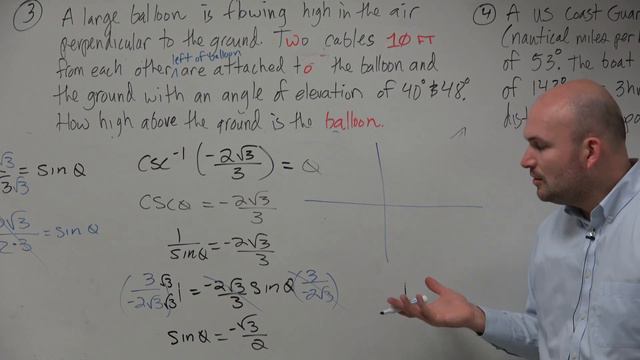 ③ A large balloon is flowing high in the air
perpendicular to the ground. Two cables 10 FT
from each other left of balloon are attached to the balloon and
the ground with an angle of elevation of 40° & 48°.
How high above the ground is the balloon.
④ A US Coast Guar
(nautical miles per
of 53.° The boat
of 142°
3hr
dist
√3 = sin θ
3√3
2√3 = sin θ
2·3
csc⁻¹ (-2√3/3) = θ
csc θ = -2√3/3
1/sin θ = -2√3/3
(3/-2√3 √3/√3) 1 = -2√3/3 sin θ (3/-2√3)
sin θ = -√3/2